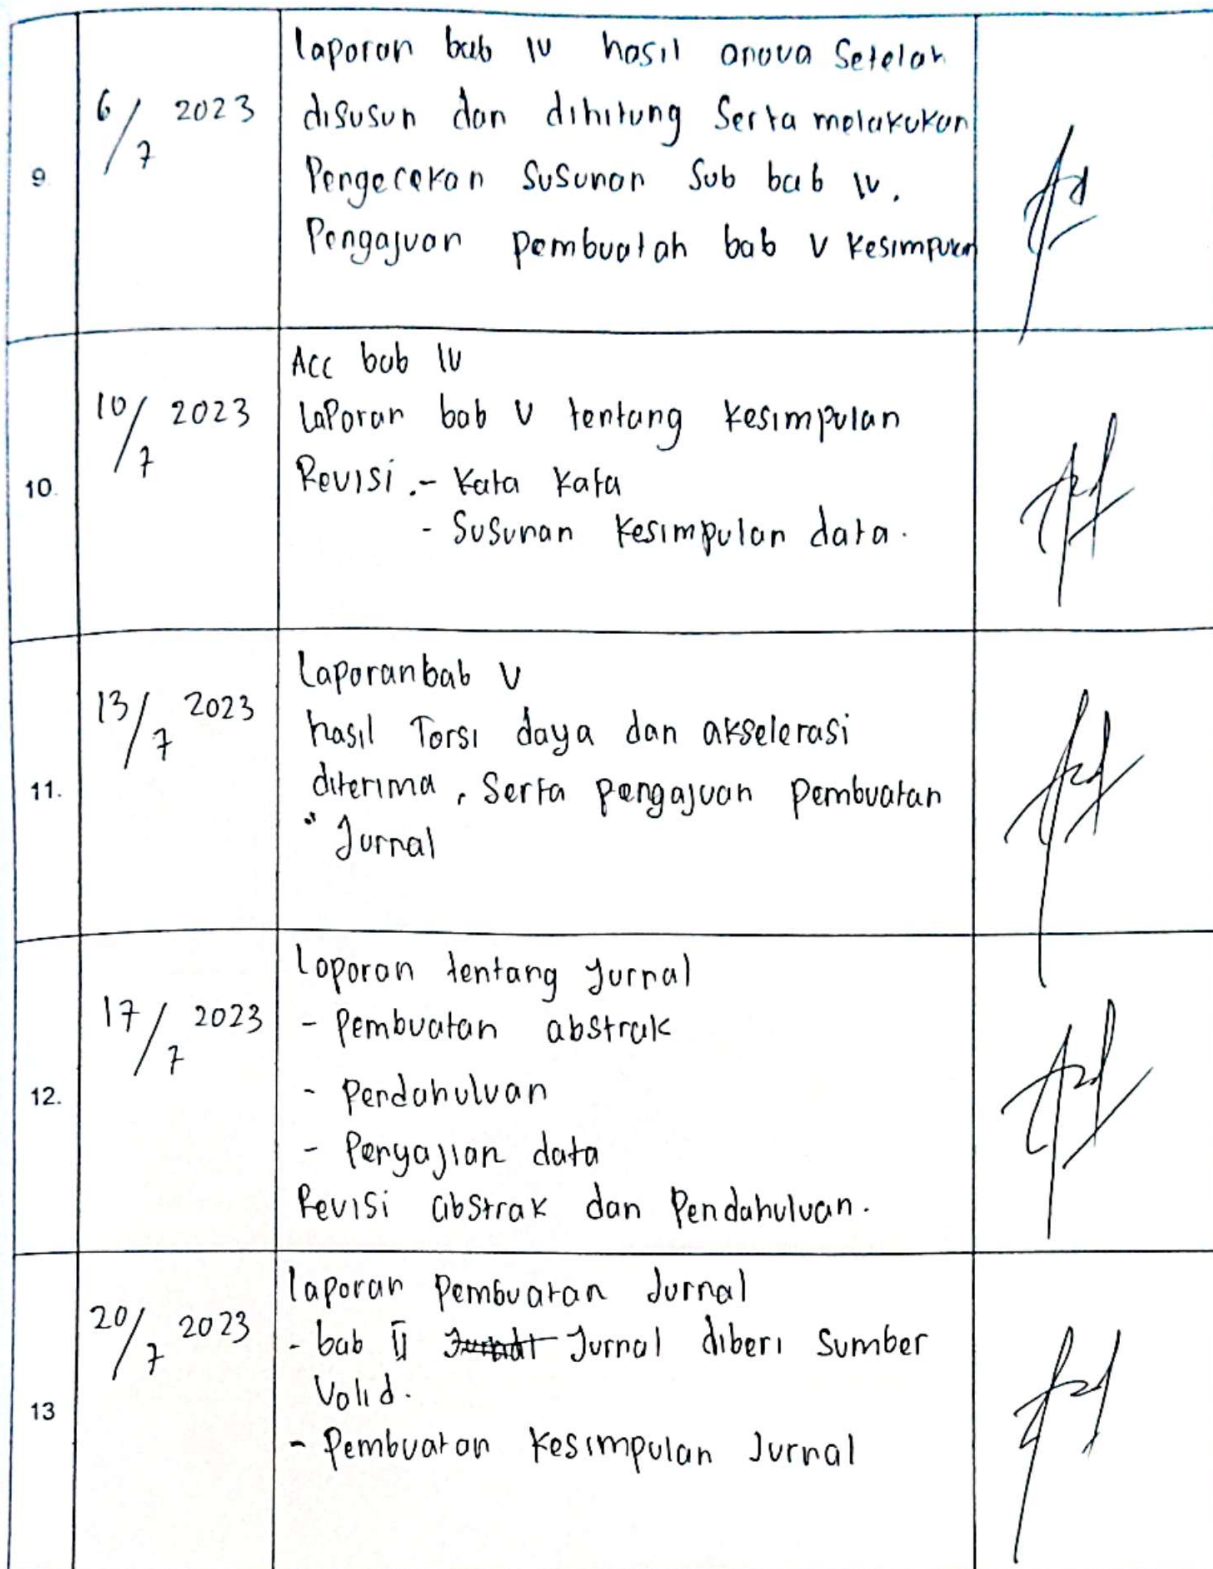 9.
6/7 2023
laporan bab IV hasil anova Setelah
disusun dan dihitung Serta melakukan
Pengecekan Susunan Sub bab IV.
Pengajuan pembuatah bab V kesimpulan
10.
10/7 2023
Acc bab IV
Laporan bab V tentang kesimpulan
Revisi .- kata kata
- Susunan kesimpulan data.
11.
13/7 2023
Laporan bab V
hasil Torsi daya dan akselerasi
diterima, Serta pengajuan pembuatan
" Jurnal
12.
17/7 2023
Laporan tentang Jurnal
- Pembuatan abstrak
- Pendahuluan
- Penyajian data
Revisi abstrak dan Pendahuluan.
13
20/7 2023
laporan Pembuatan Jurnal
- bab II Jurnal diberi Sumber
Valid.
- Pembuatan kesimpulan Jurnal